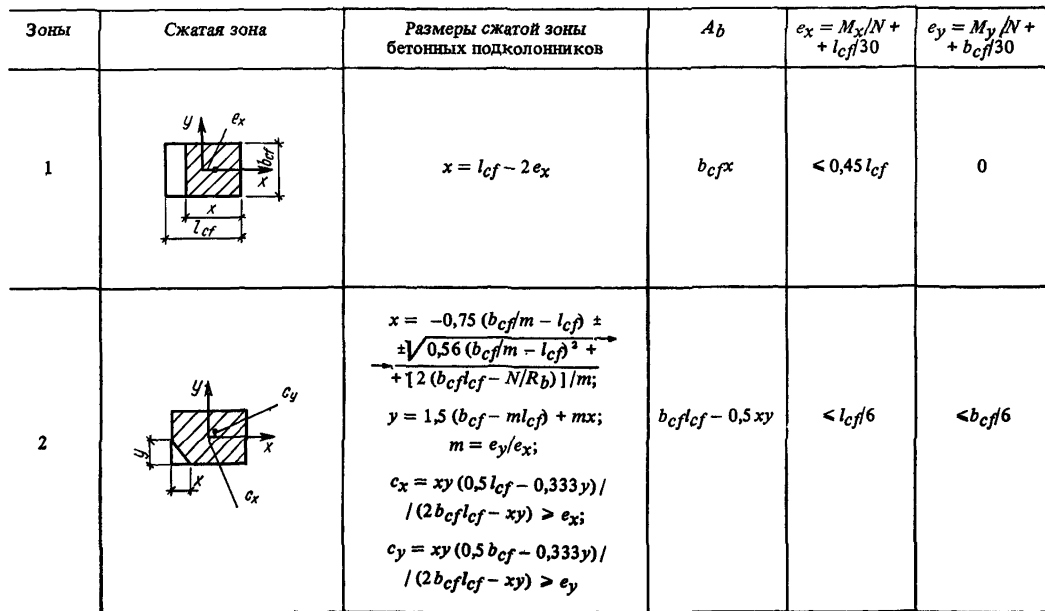 Зоны
Сжатая зона
Размеры сжатой зоны
бетонных подколонников
A_b
e_x = M_x/N +
+ l_cf/30
e_y = M_y/N +
+ b_cf/30
1
y
e_x
b_cf
x
x
l_cf
x = l_cf − 2e_x
b_cf x
≤ 0,45 l_cf
0
2
y
c_y
x
y
x
c_x
x = −0,75 (b_cf/m − l_cf) ±
±√0,56 (b_cf/m − l_cf)² +
+ [2 (b_cf l_cf − N/R_b)]/m;
y = 1,5 (b_cf − ml_cf) + mx;
m = e_y/e_x;
c_x = xy (0,5 l_cf − 0,333y) /
/ (2b_cf l_cf − xy) ⩾ e_x;
c_y = xy (0,5 b_cf − 0,333y) /
/ (2b_cf l_cf − xy) ⩾ e_y
b_cf l_cf − 0,5 xy
≤ l_cf/6
≤ b_cf/6